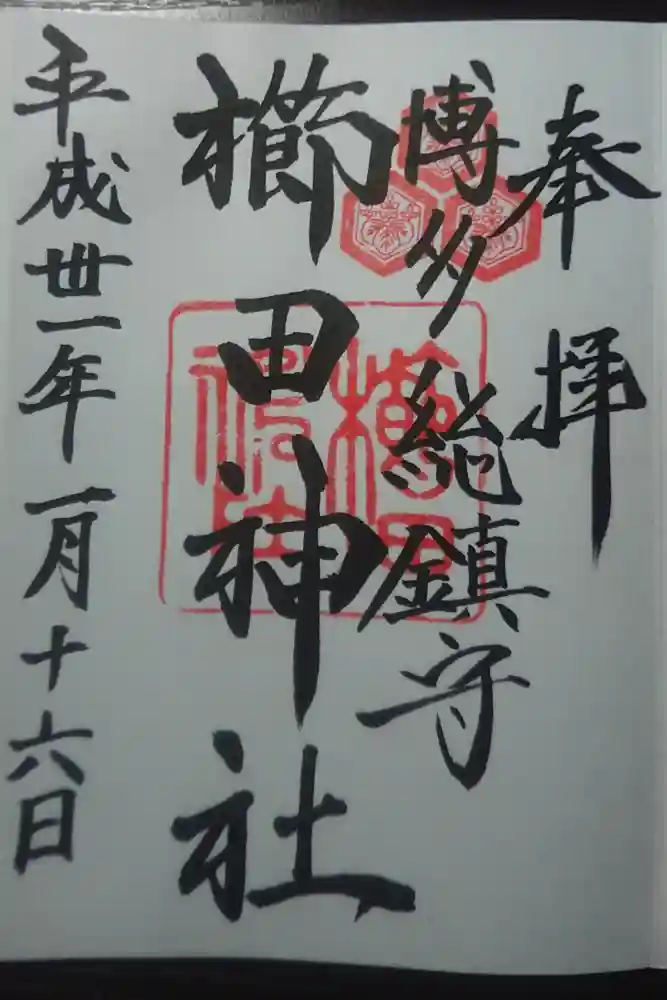 奉拝
博多総鎮守
櫛田神社
平成卅一年一月十六日
櫛田神社